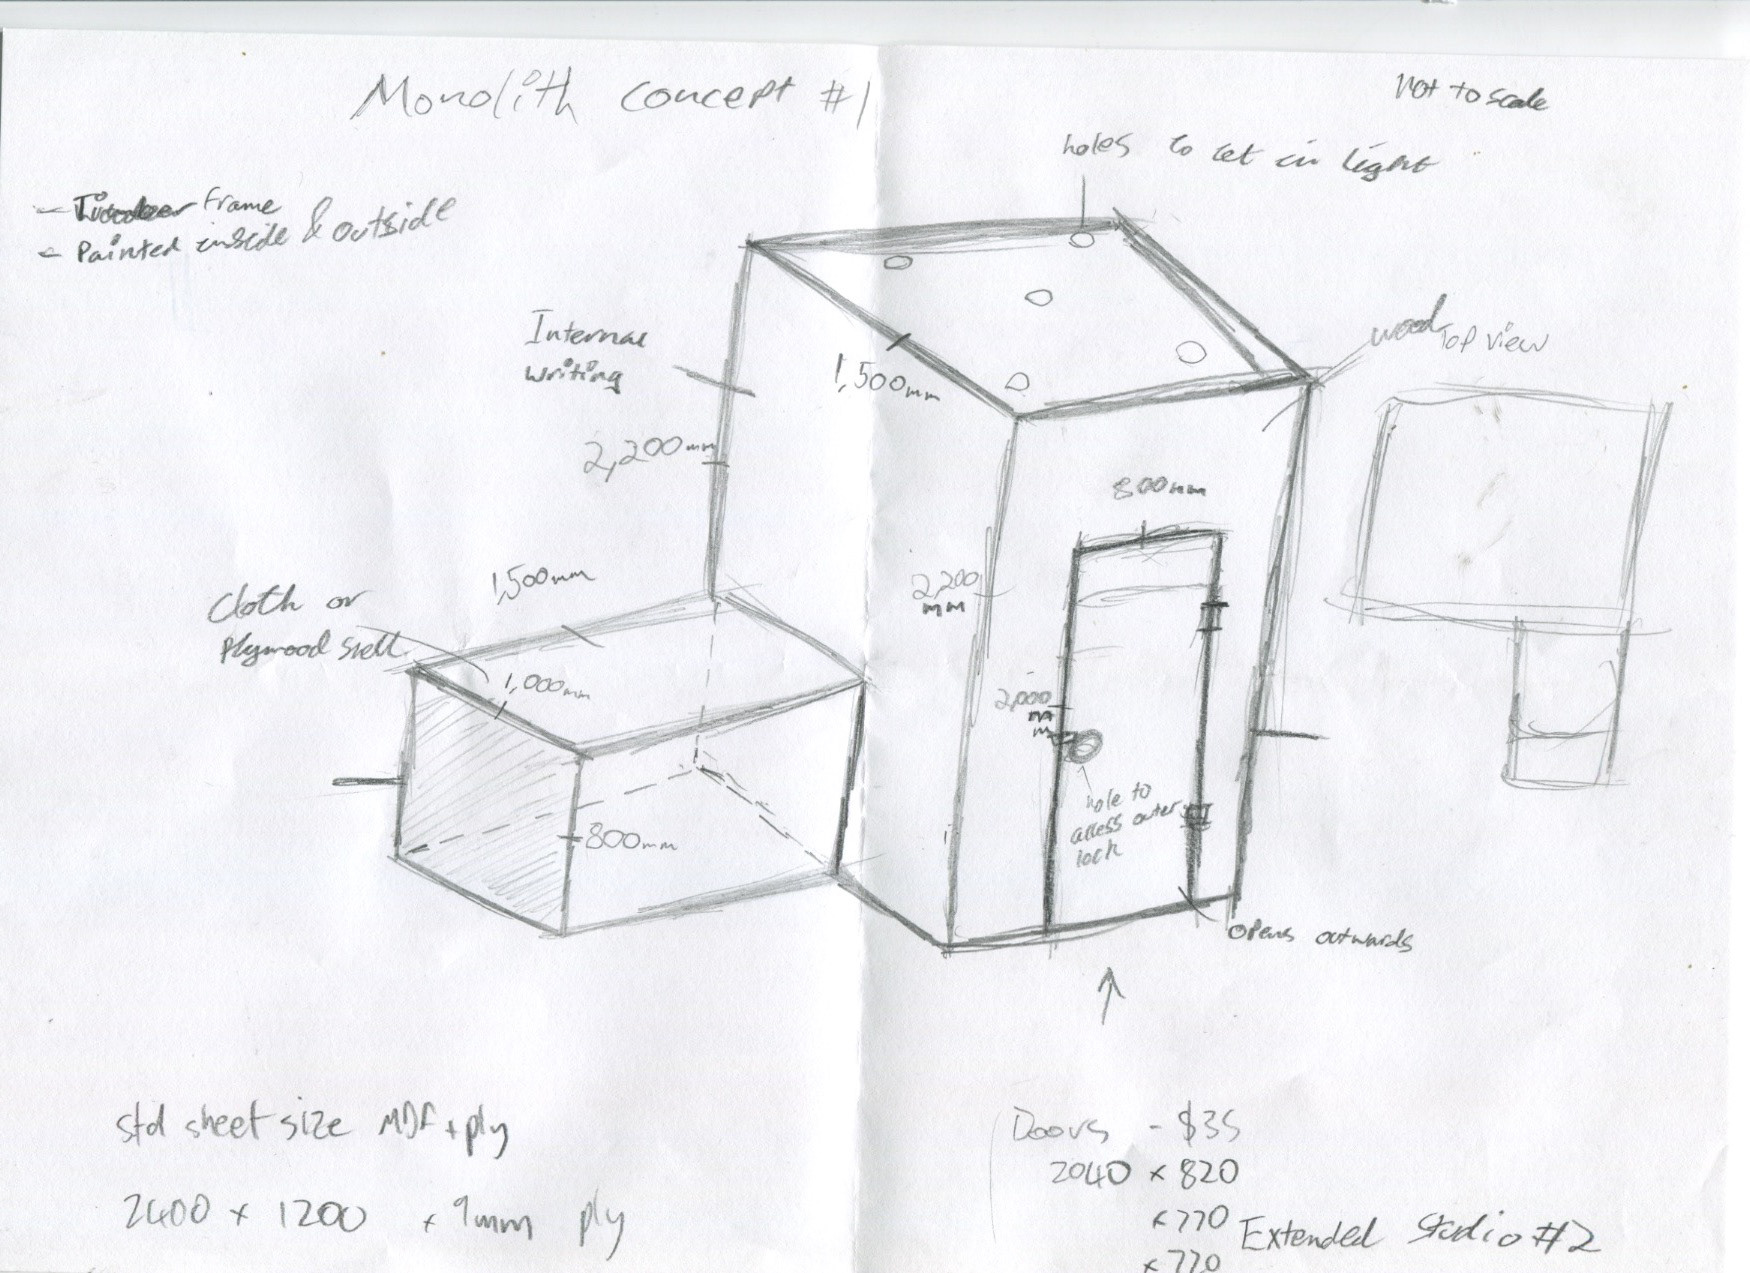 Monolith concept #1
Not to scale
holes to let in light
- Timber frame
- Painted inside & outside
Internal
writing
wood
Top view
1,500mm
2,200mm
800mm
1,500mm
2,200
mm
Cloth or
plywood
1,000mm
2,000
mm
hole to
access outer
lock
800mm
opens outwards
std sheet size MDF + ply
2400 x 1200 x 9mm ply
Doors - $35
2040 x 820
x 770
x 720
Extended Studio #2